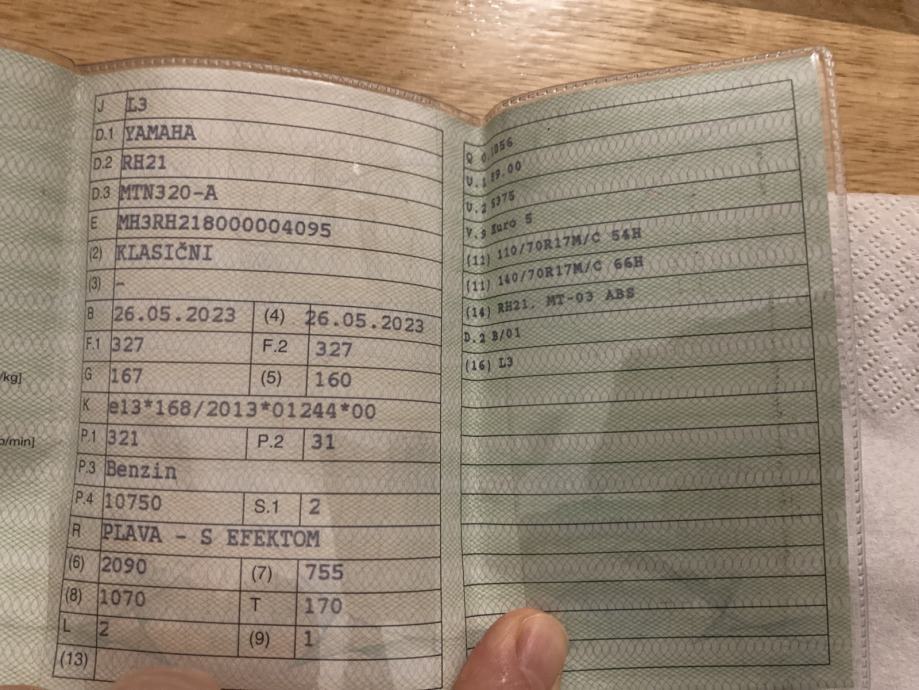 /kg]
o/min]
J L3
D.1 YAMAHA
D.2 RH21
D.3 MTN320-A
E MH3RH218000004095
(2) KLASIČNI
(3) -
B 26.05.2023 (4) 26.05.2023
F.1 327 F.2 327
G 167 (5) 160
K e13*168/2013*01244*00
P.1 321 P.2 31
P.3 Benzin
P.4 10750 S.1 2
R PLAVA - S EFEKTOM
(6) 2090 (7) 755
(8) 1070 T 170
L 2 (9) 1
(13)
Q 0,1056
U.1 89.00
U.2 5375
V.9 Euro 5
(12) 110/70R17M/C 54H
(11) 140/70R17M/C 66H
(14) RH21, MT-03 ABS
D.2 B/01
(16) L3